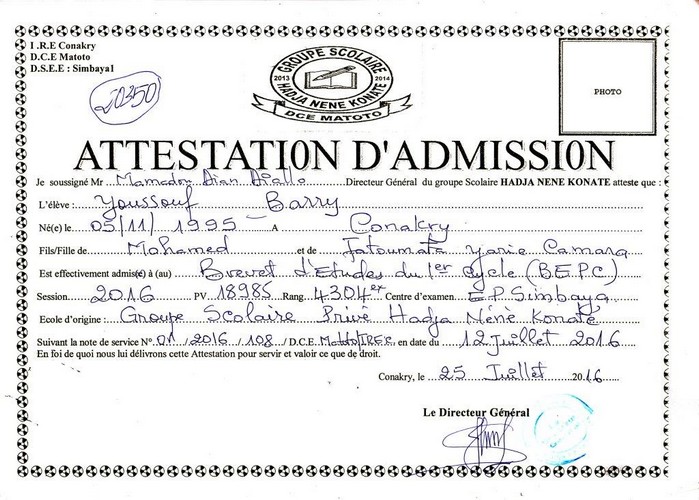 I .R.E Conakry
D.C.E Matoto
D.S.E.E : Simbaya1
20350
GROUPE SCOLAIRE
2013 2014
HADJA NENE KONATE
DCE MATOTO
PHOTO
ATTESTATI0N D'ADMISSI0N
Je soussigné Mr Mamadou Dian Diallo Directeur Général du groupe Scolaire HADJA NENE KONATE atteste que :
L'élève : Youssouf Barry
Né(e) le 05/11/1995 A Conakry
Fils/Fille de Mohamed et de Fatoumata Yarie Camara
Est effectivement admis(e) à (au) Brevet d'Etudes du 1er Cycle (B.E.P.C)
Session 2016 PV 18985 Rang 4304ex Centre d'examen E.P Simbaya
Ecole d'origine : Groupe Scolaire Privé Hadja Néné Konaté
Suivant la note de service N° 01/2016/108/D.C.E. en date du 12 Juillet 2016
En foi de quoi nous lui délivrons cette Attestation pour servir et valoir ce que de droit.
Conakry, le 25 Juillet 2016
Le Directeur Général